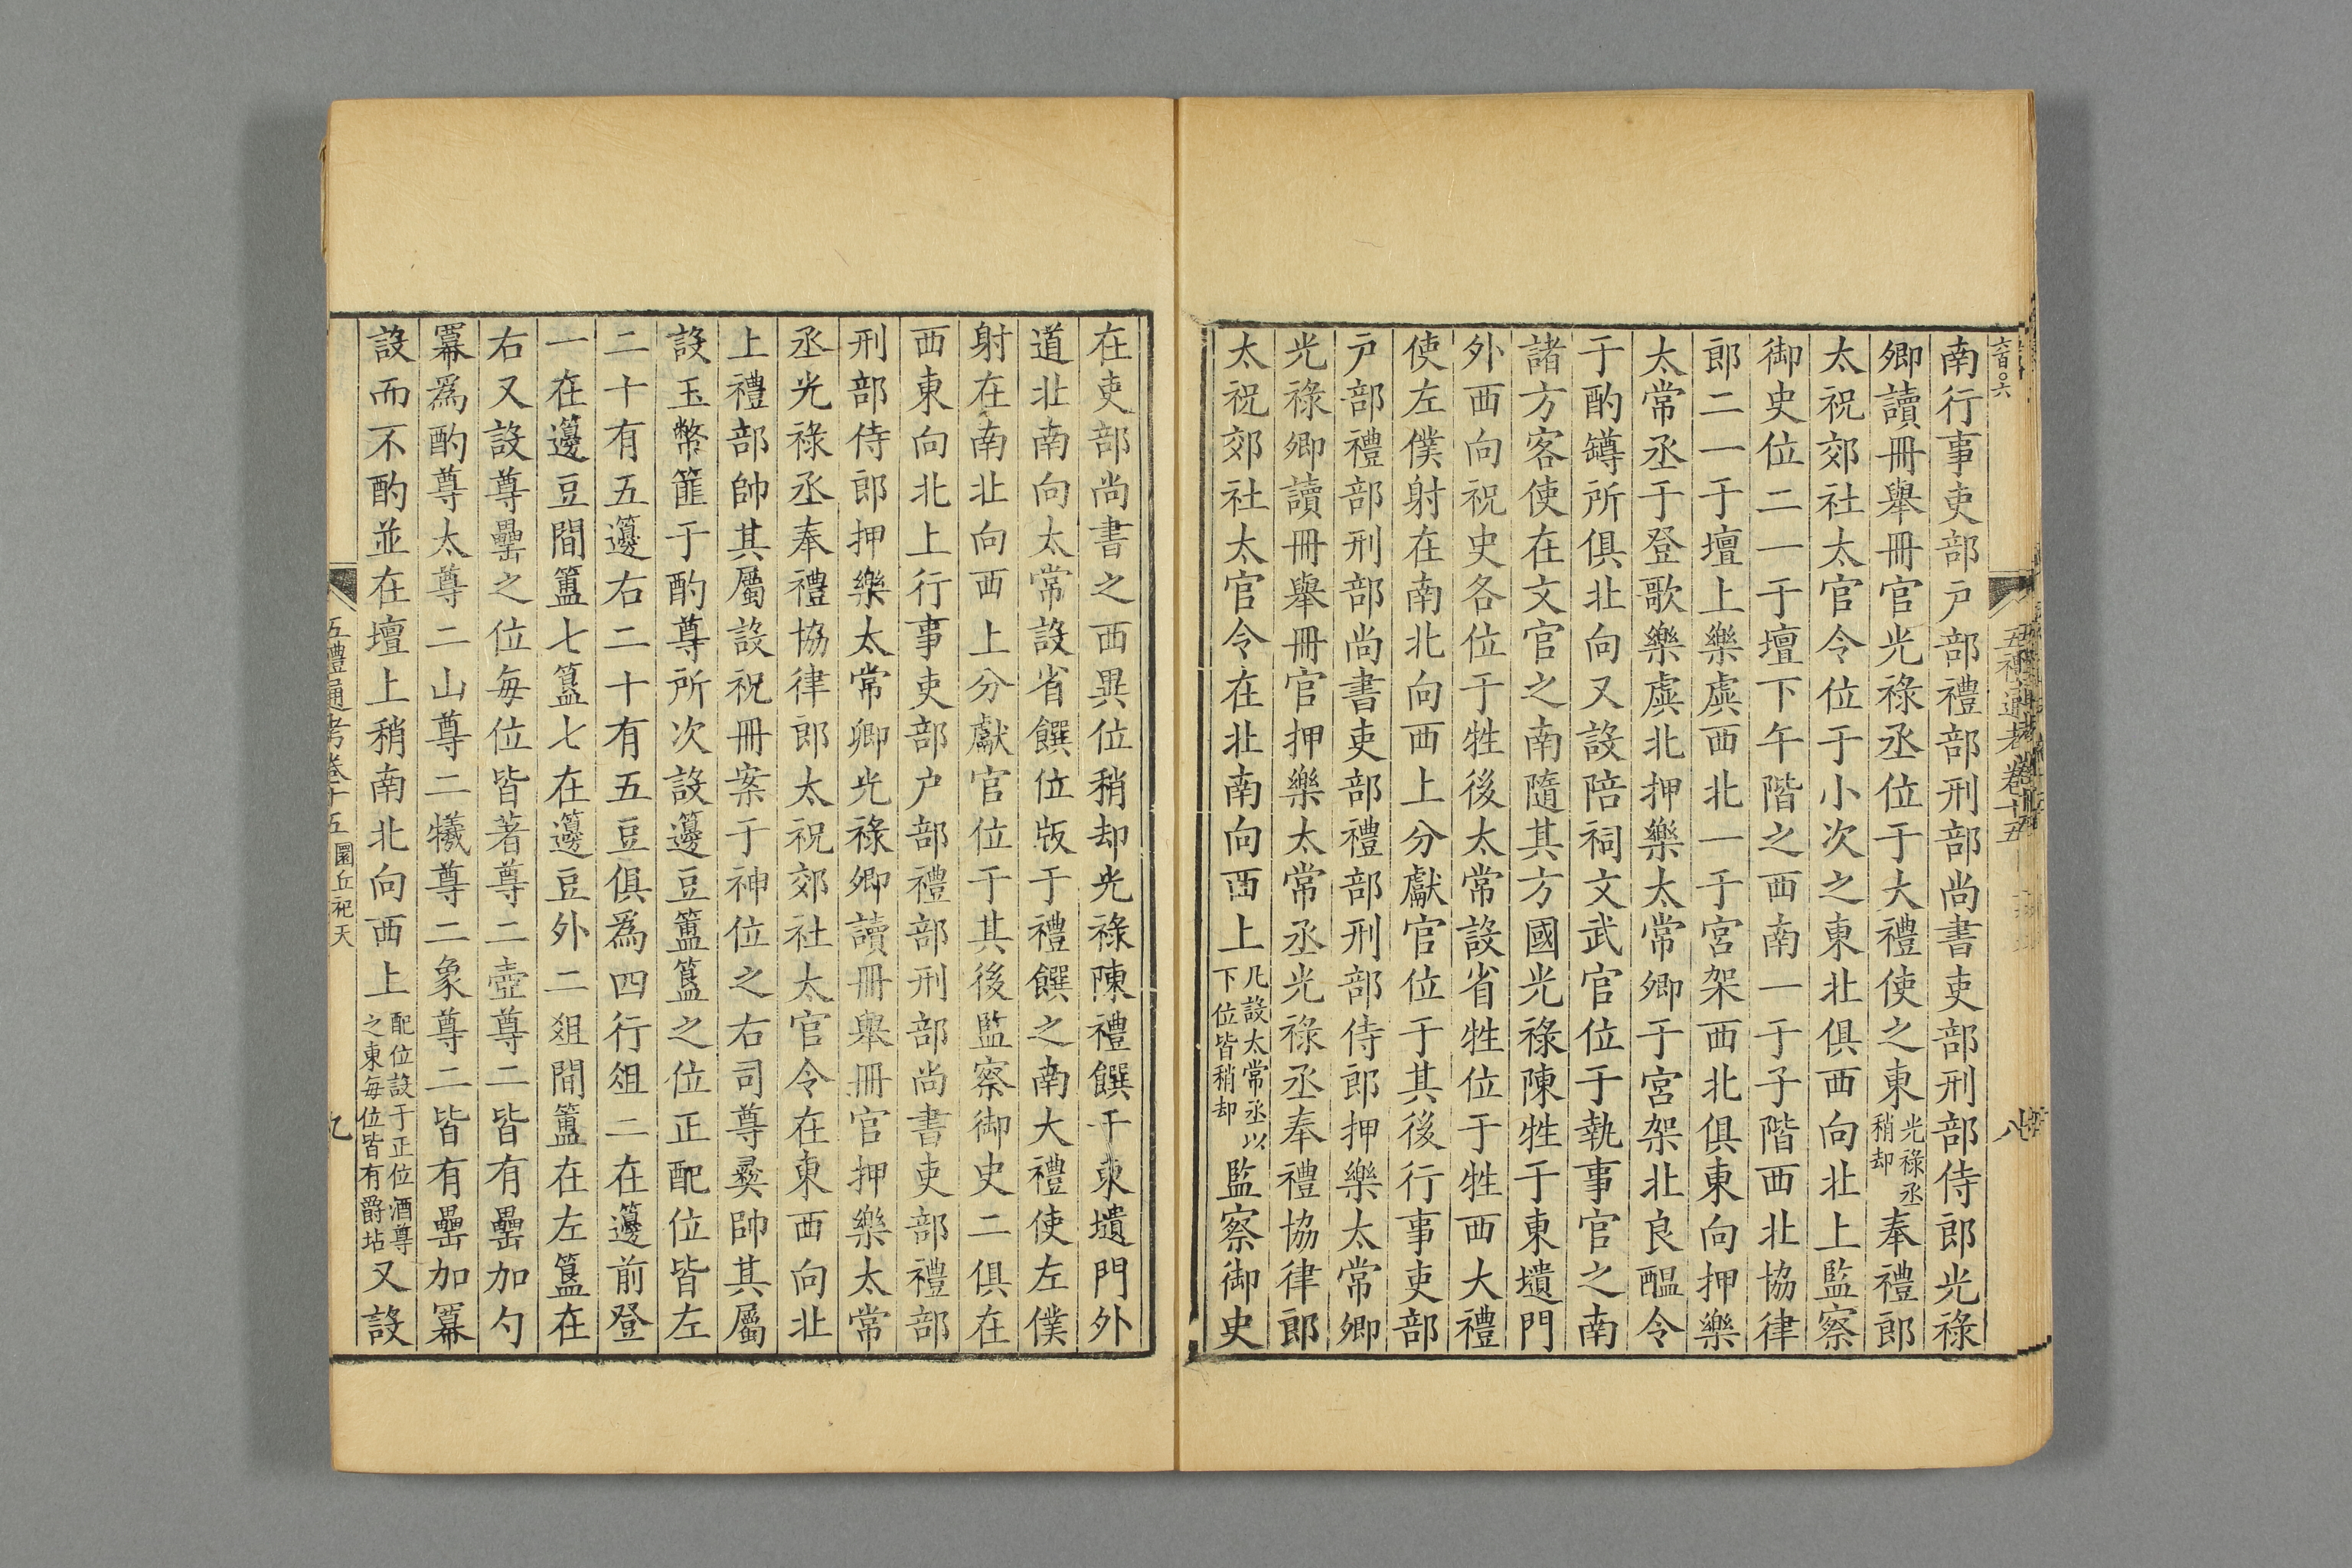 南行事吏部戸部禮部刑部尚書吏部刑部侍郎光祿
卿讀冊舉冊官光祿丞位于大禮使之東光祿丞稍却奉禮郎
太祝郊社太官令位于小次之東北俱西向北上監察
御史位二一于壇下午階之西南一于子階西北協律
郎二一于壇上樂虡西北一于宮架西北俱東向押樂
太常丞于登歌樂虡北押樂太常卿于宮架北良醞令
于酌罇所俱北向又設陪祠文武官位于執事官之南
諸方客使在文官之南隨其方國光祿陳牲于東壝門
外西向祝史各位于牲後太常設省牲位于牲西大禮
使左僕射在南北向西上分獻官位于其後行事吏部
戸部禮部刑部尚書吏部禮部刑部侍郎押樂太常卿
光祿卿讀冊舉冊官押樂太常丞光祿丞奉禮協律郎
太祝郊社太官令在北南向西上凡設太常丞以下位皆稍却監察御史
在吏部尚書之西異位稍却光祿陳禮饌于東壝門外
道北南向太常設省饌位版于禮饌之南大禮使左僕
射在南北向西上分獻官位于其後監察御史二俱在
西東向北上行事吏部户部禮部刑部尚書吏部禮部
刑部侍郎押樂太常卿光祿卿讀冊舉冊官押樂太常
丞光祿丞奉禮協律郎太祝郊社太官令在東西向北
上禮部帥其屬設祝冊案于神位之右司尊彝帥其屬
設玉幣篚于酌尊所次設籩豆簠簋之位正配位皆左
二十有五籩右二十有五豆俱為四行俎二在籩前登
一在籩豆間簠七簋七在籩豆外二俎間簠在左簋在
右又設尊罍之位每位皆著尊二壺尊二皆有罍加勺
冪爲酌尊太尊二山尊二犧尊二象尊二皆有罍加冪
設而不酌並在壇上稍南北向西上配位設于正位酒尊之東每位皆有爵坫又設
五禮通考卷十五 圜丘祀天 九